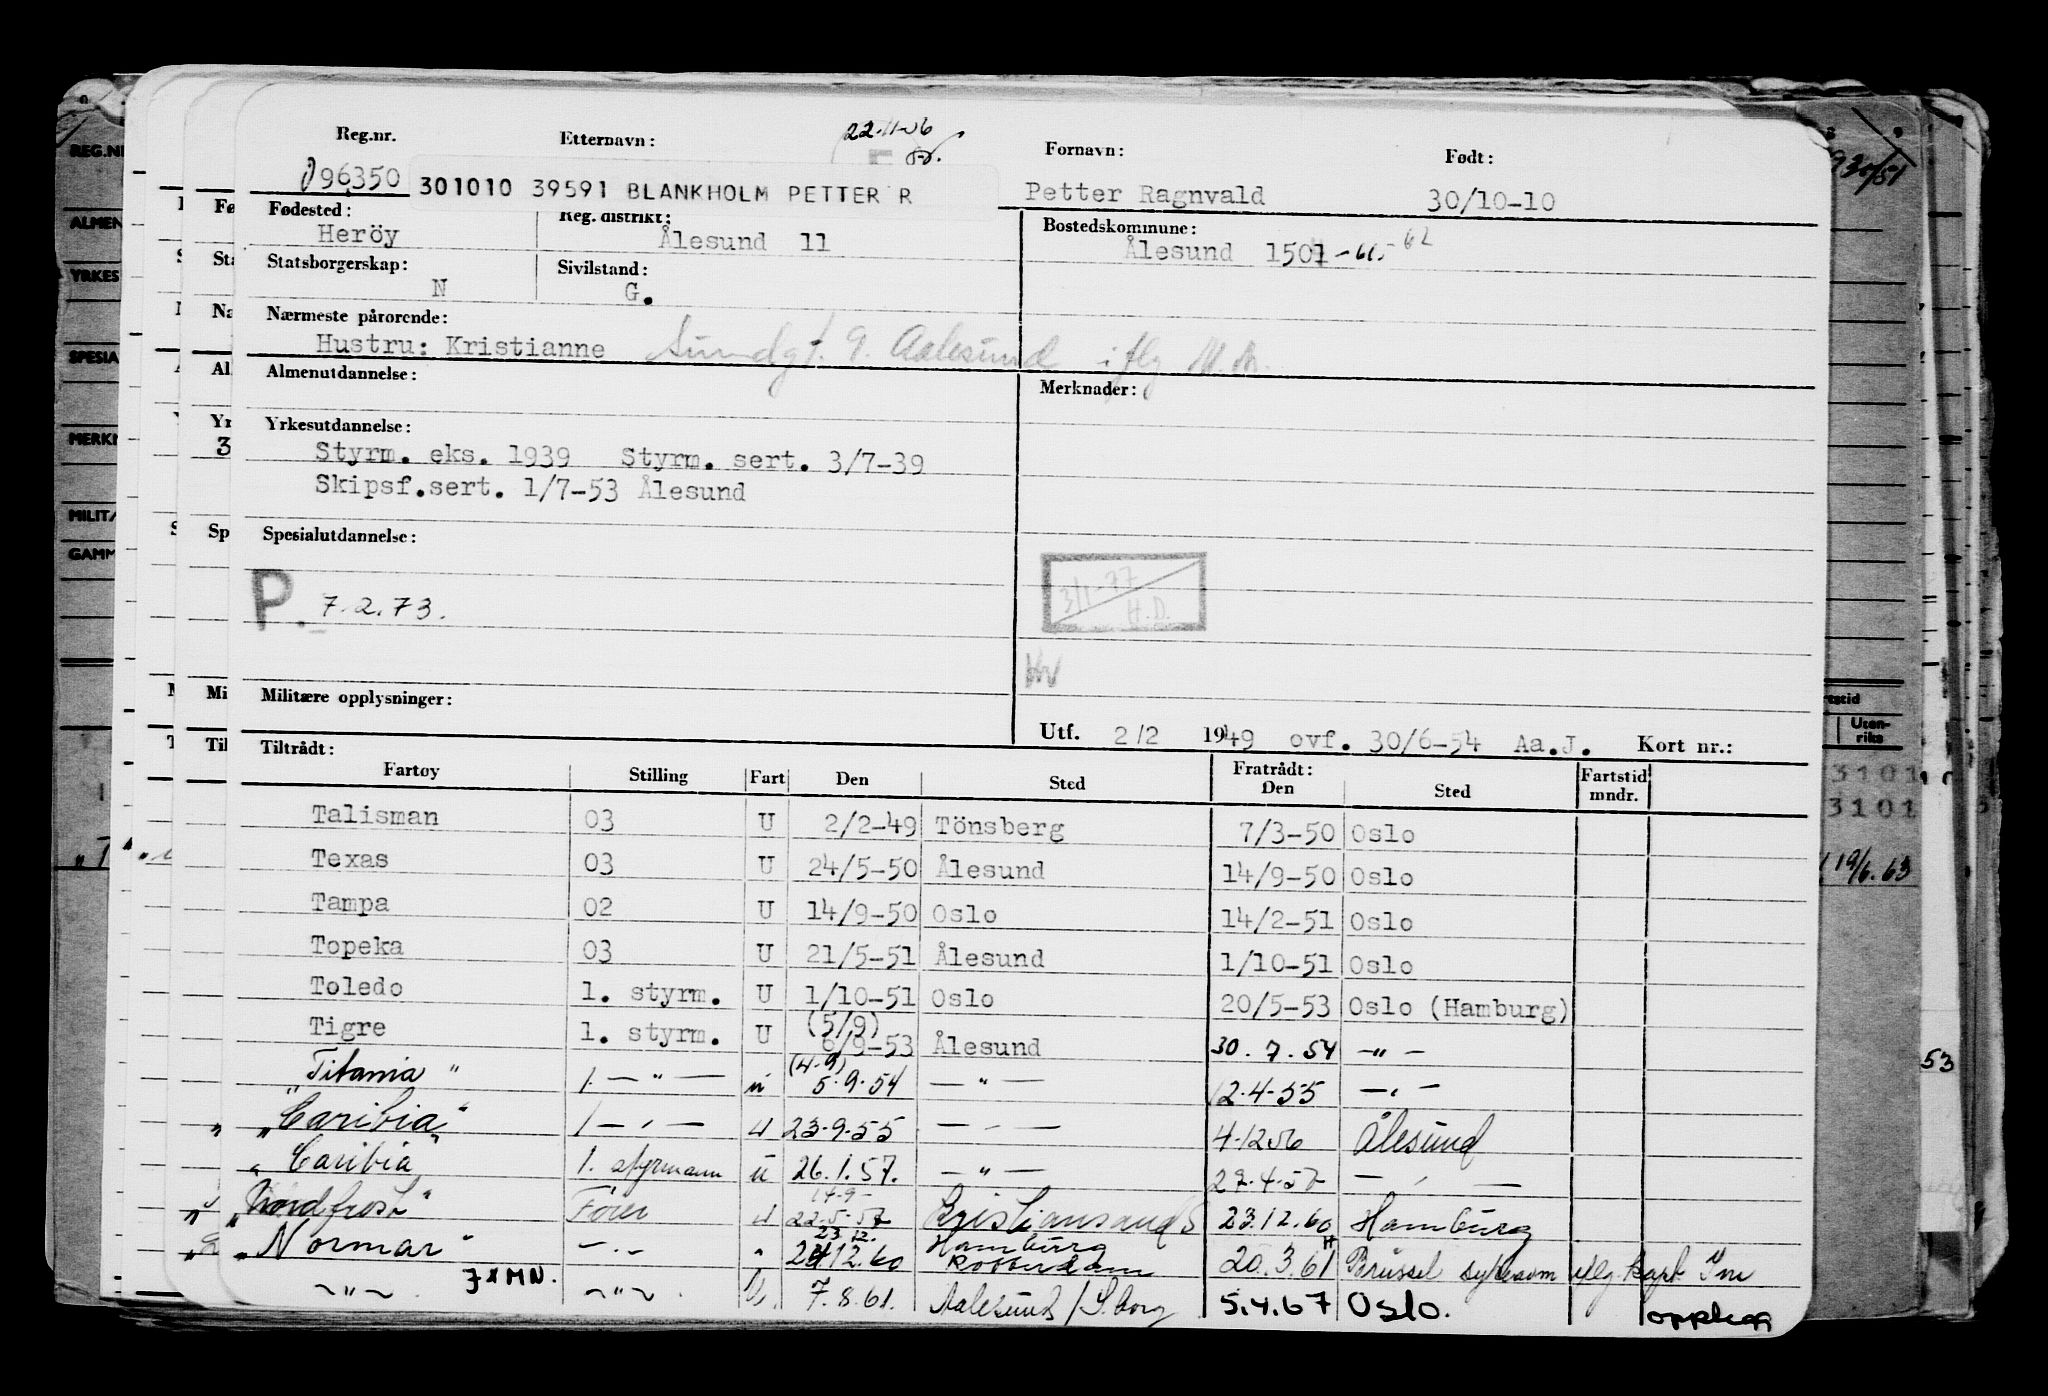 Reg.nr. Etternavn: 22-11-56 Fornavn: Født:
096350 301010 39591 BLANKHOLM PETTER R Petter Ragnvald 30/10-10
Fødested: Reg. distrikt: Bostedskommune:
Heröy Ålesund 11 Ålesund 1501
Statsborgerskap: Sivilstand:
N G.
Nærmeste pårørende:
Hustru: Kristianne Sundgt. 9. Aalesund iflg M.M.
Almenutdannelse: Merknader:
Yrkesutdannelse:
Styrm. eks. 1939 Styrm. sert. 3/7-39
Skipsf.sert. 1/7-53 Ålesund
Spesialutdannelse:
P. 7.2.73.
3/1-77
H.D.
Militære opplysninger:
Utf. 2/2 1949 ovf. 30/6-54 Aa.J. Kort nr.:
Tiltrådt: Fratrådt:
Fartøy Stilling Fart Den Sted Den Sted Fartstid mndr.
Talisman 03 U 2/2-49 Tönsberg 7/3-50 Oslo
Texas 03 U 24/5-50 Ålesund 14/9-50 Oslo
Tampa 02 U 14/9-50 Oslo 14/2-51 Oslo
Topeka 03 U 21/5-51 Ålesund 1/10-51 Oslo
Toledo 1. styrm. U 1/10-51 Oslo 20/5-53 Oslo (Hamburg)
Tigre 1. styrm. U (5/9) 6/9-53 Ålesund 30.7.54 —"—
"Titania" 1. —"— u (4-9) 5.9.54 —"— 12.4-55 —"—
"Caribia" 1 —"— u 23.9.55 —"— 4.12.56 Ålesund
"Caribia" 1. styrmann u 26.1.57. —"— 27.4.57 —"—
"Nordfrost" Fører u 22.5.57 Kristiansand S 23.12.60 Hamburg
"Normar" —"— " 23.12. 24.12.60 Hamburg Rotterdam 20.3.61 Brüssel sykdom iflg. kapt.
—"— 7 x MN. —"— U. 7.8.61. Aalesund / S.borg 5.4.67 Oslo. opplegg
REG.NR
ALMEN
YRKES
SPESIA
MERKN
MILIT
GAMM
Uten-
riks
3101
3101
19/6.63
53